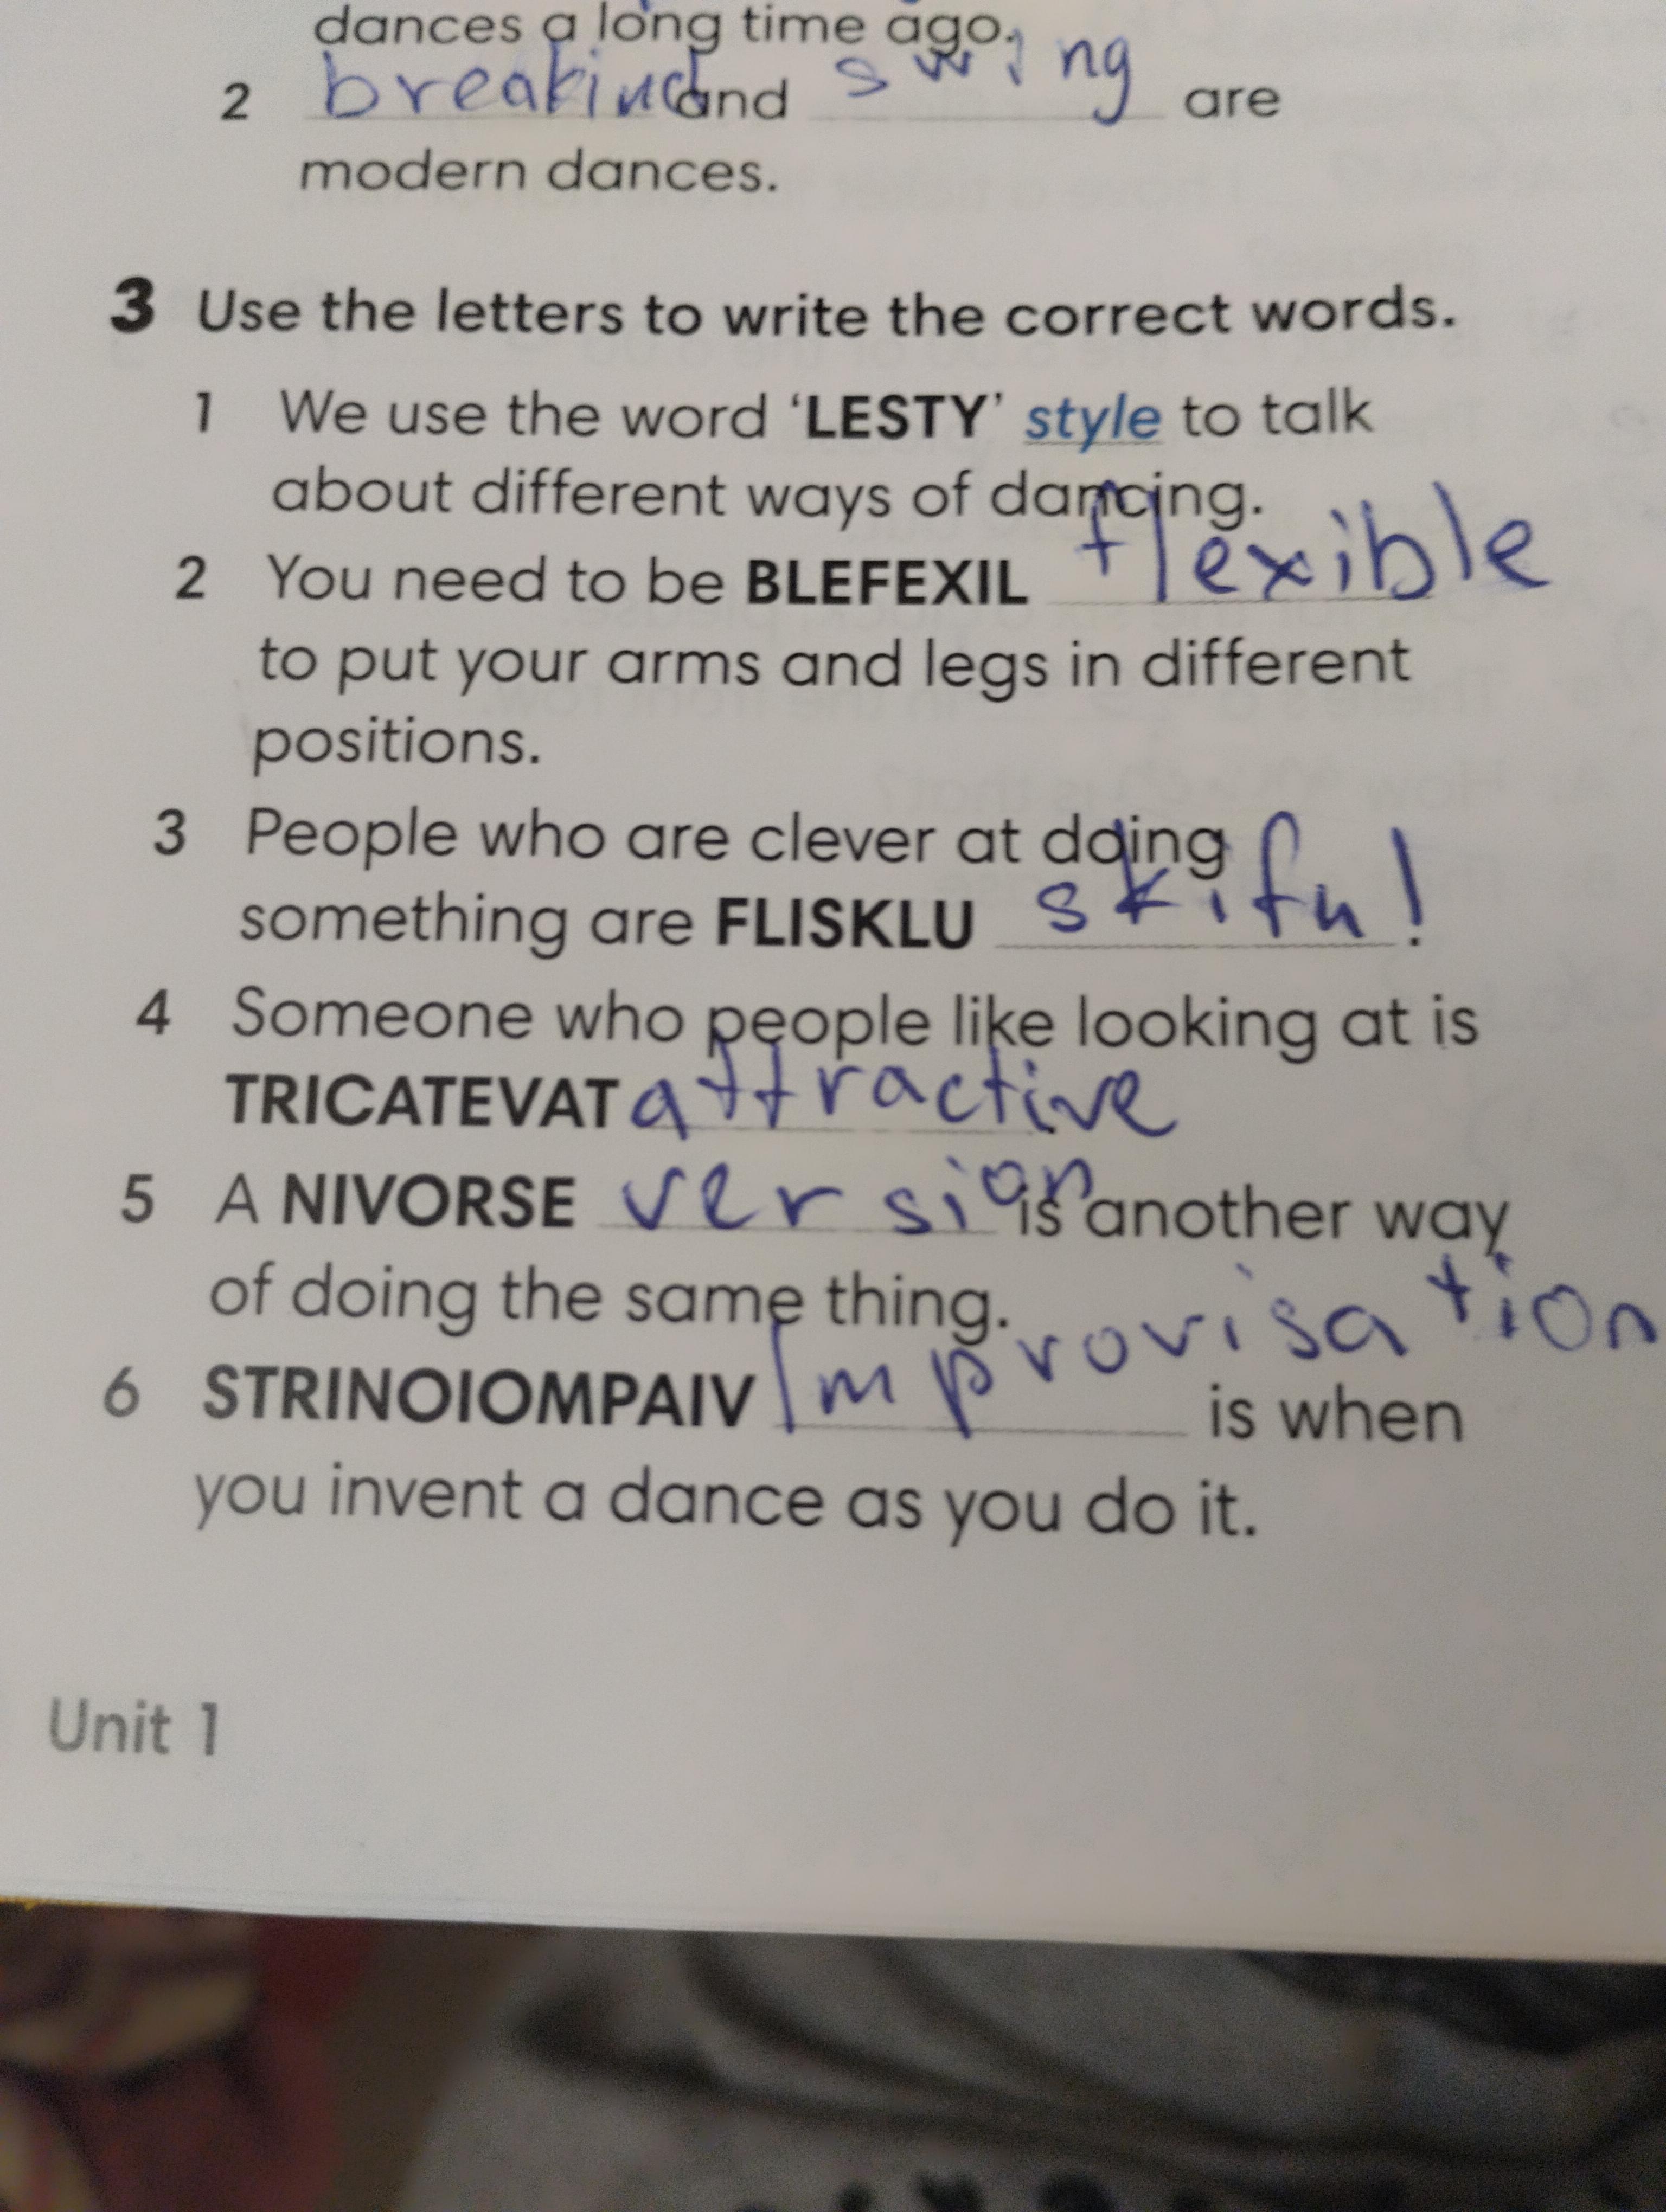 dances a long time ago.
2 breaking and swing are
modern dances.
3 Use the letters to write the correct words.
1 We use the word ‘LESTY’ style to talk
about different ways of dancing.
2 You need to be BLEFEXIL flexible
to put your arms and legs in different
positions.
3 People who are clever at doing
something are FLISKLU skiful.
4 Someone who people like looking at is
TRICATEVAT attractive.
5 A NIVORSE version is another way
of doing the same thing.
6 STRINOIOMPAIV Improvisation is when
you invent a dance as you do it.
Unit 1